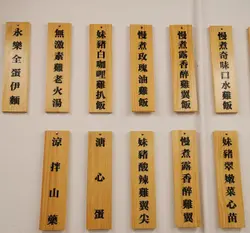 永樂全蛋伊麵
無激素雞老火湯
妹豬白咖哩雞扒飯
慢煮玫瑰油雞飯
慢煮露香醉雞翼飯
慢煮奇味口水雞飯
涼拌山藥
溏心蛋
妹豬酸辣雞翼尖
慢煮露香醉雞翼
妹豬翠嫩菜心苗